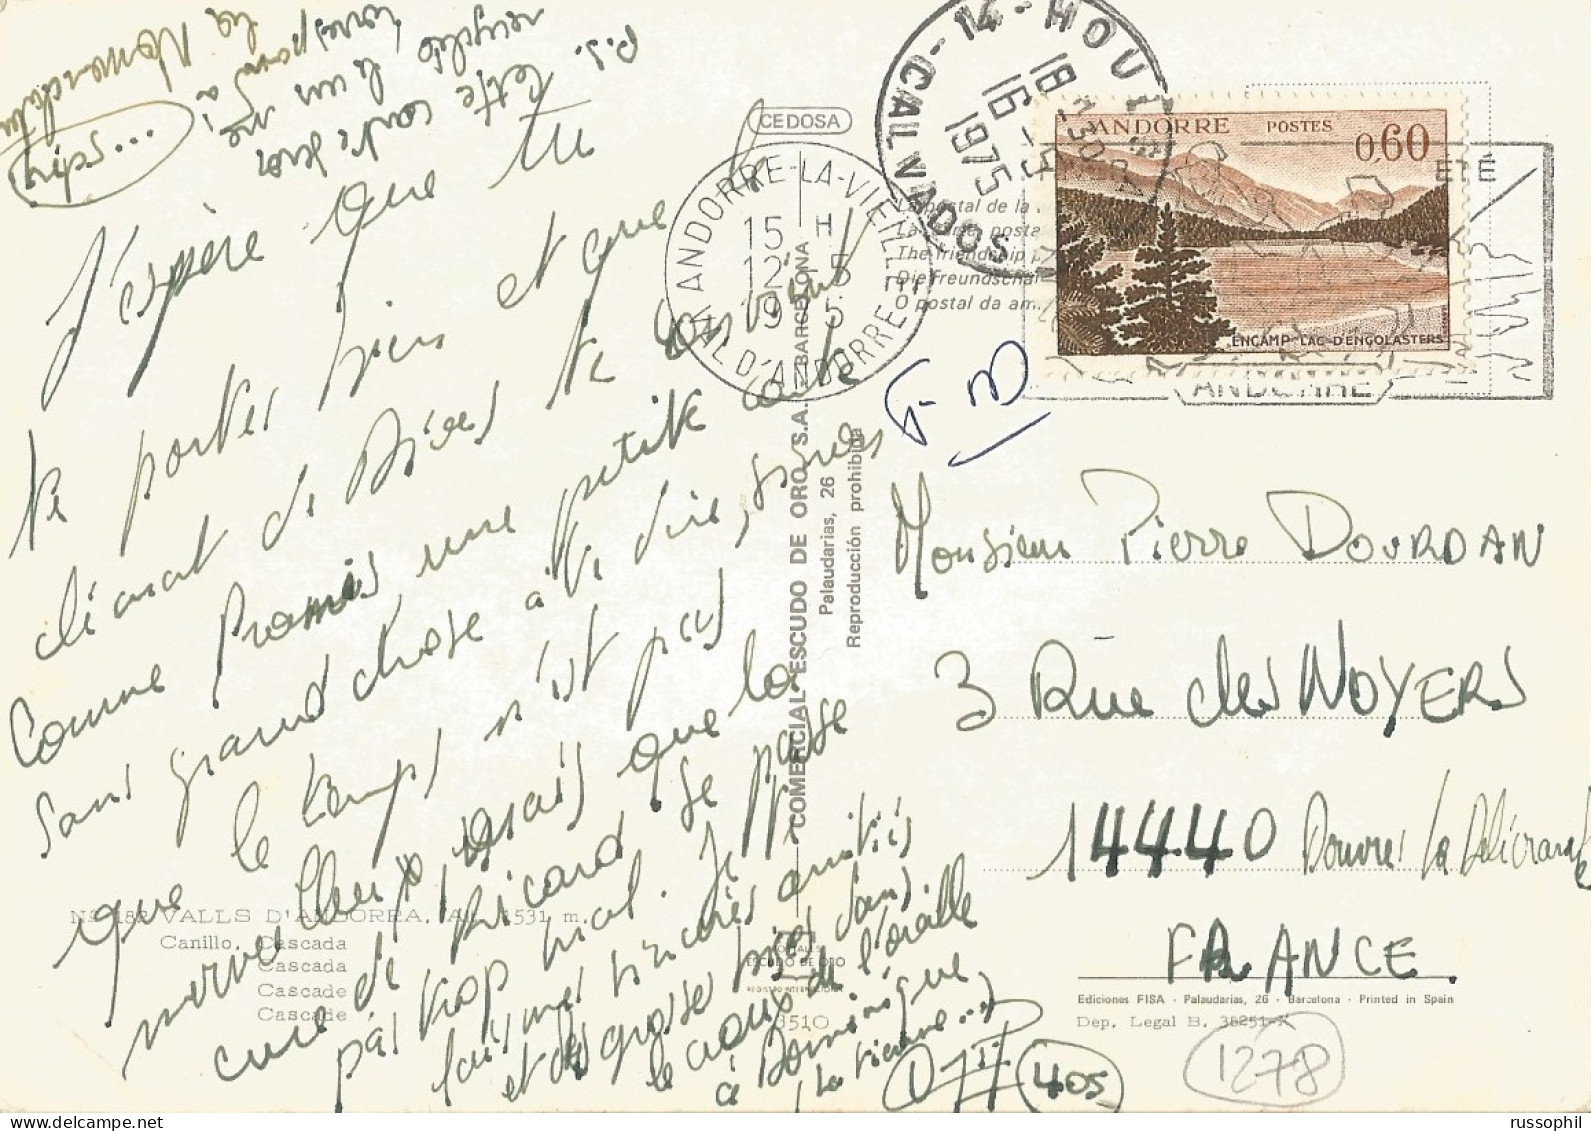 J'espère que tu
te portes bien et que le
climat de Dives te convient
Comme promis, une petite carte
sans grand chose à te dire, sinon
que le temps n'est pas
merveilleux mais que la
cure de Ricard se passe
pas trop mal. Je te
fais mes sincères amitiés
et des grosses bises dans
le creux de l'oreille
à Dominique
(la tienne...)
P.S. Cette carte devra
recyclée
correspond à
la Nomenclature
CEDOSA
ANDORRE-LA-VIEILLE
VAL D'ANDORRE
15 H
12 - 5
19 5
14 - HOU
CALVADOS
18
16 - 5
1975
ANDORRE POSTES
0,60
ENCAMP LAC D'ENGOLASTERS
ÉTÉ
ANDORRE
La postal de la
La carte posta
The friendship
Die Freundschaf
O postal da am
COMERCIAL ESCUDO DE ORO, S.A. BARCELONA
Palaudarias, 26
Reproducción prohibida
Monsieur Pierre DOURDAN
3 Rue des NOYERS
14440 Douvres la Délivrande
FRANCE.
Nº 182 VALLS D'ANDORRA, Alt. 1531 m.
Canillo, Cascada
Cascada
Cascade
Cascade
ESCUDO DE ORO
REGISTRO INTERNACIONAL
3510
Ediciones FISA - Palaudarias, 26 - Barcelona - Printed in Spain
Dep. Legal B. 38251-X
405
1278
russophil